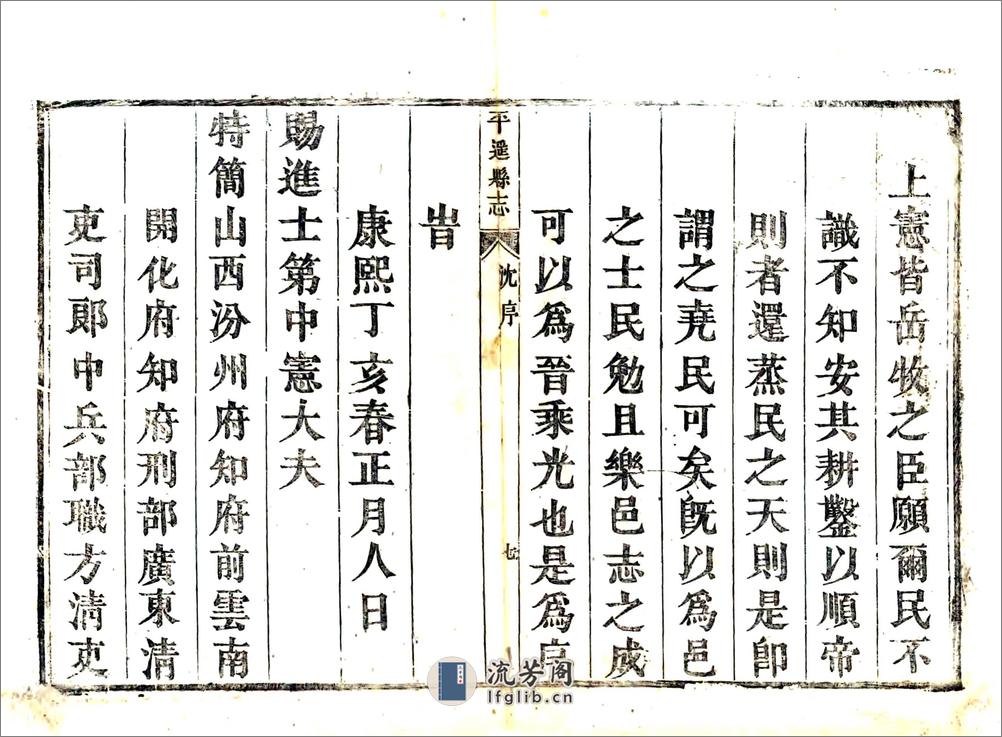 上憲皆岳牧之臣願爾民不
識不知安其耕鑿以順帝
則者還蒸民之天則是卽
謂之堯民可矣旣以爲邑
之士民勉且樂邑志之成
可以爲晉乘光也是爲序
平遥縣志
沈序
七
旹
康熙丁亥春正月人日
賜進士第中憲大夫
特簡山西汾州府知府前雲南
開化府知府刑部廣東清
吏司郎中兵部職方清吏
流芳阁
lfglib.cn